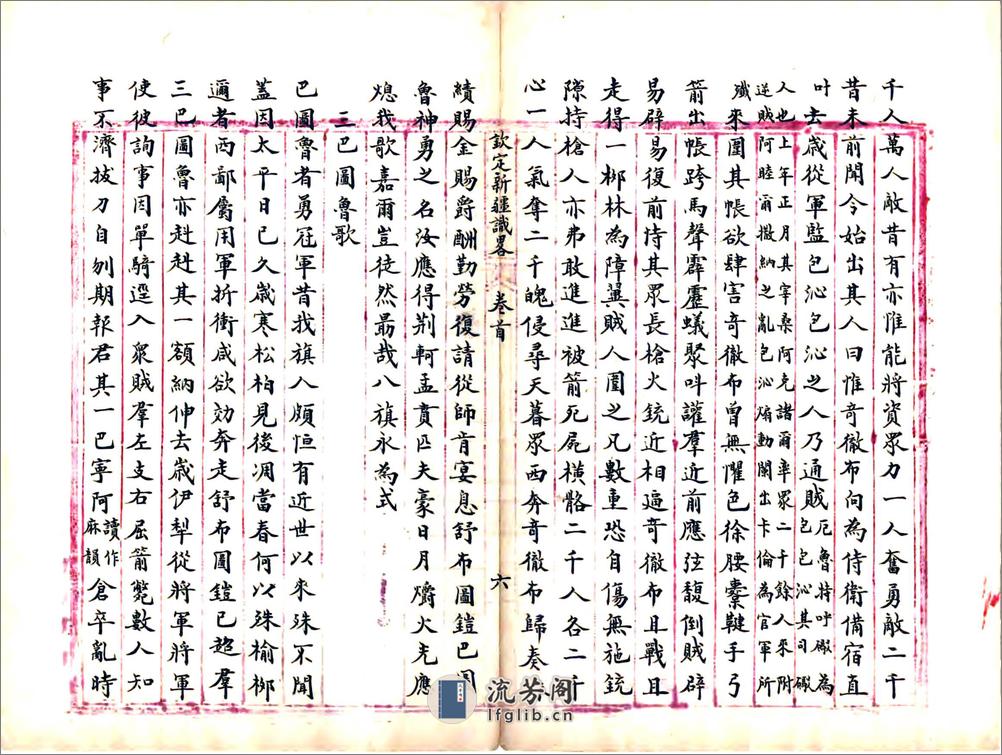 千人萬人敵昔有亦惟能將資眾力一人奮勇敵二千
昔未前聞今始出其人曰惟奇徹布向為侍衛備宿直
叶去歲從軍監包沁包沁之人乃通賊厄魯特呼礮為包包沁其司礮
人也上年正月其宰桑阿克諸爾率眾二千餘人來附逆賊阿睦爾撒納之亂包沁煽動闌出卡倫為官軍所
殲來圍其帳欲肆害奇徹布曾無懼色徐腰櫜鞬手弓
箭出帳跨馬聲霹靂蟻聚呌讙羣近前應弦馥倒賊辟
易辟易復前恃其眾長槍火銃近相逼奇徹布且戰且
走得一梆林為障翼賊人圍之凡數重恐自傷無施銃
隙持槍人亦弗敢進進被箭死屍橫骼二千人各二千
心一人氣奪二千魄侵尋天暮眾西奔奇徹布歸奏
欽定新疆識畧 卷首 六
績賜金賜爵酬勤勞復請從師肯宴息舒布圖鎧巴圖
魯神勇之名汝應得荆軻孟賁匹夫豪日月爝火光應
熄我歌嘉爾豈徒然最哉八旗永為式
三巴圖魯歌
巴圖魯者勇冠軍昔我旗人頗恒有近世以來殊不聞
蓋因太平日已久歲寒松柏見後凋當春何以殊榆梆
邇者西鄙屬用軍折衝咸欲効奔走舒布圖鎧已超羣
三巴圖魯亦赳赳其一額納伸去歲伊犁從將軍將軍
使彼詢事因單騎逕入眾賊羣左支右屈箭斃數人知
事不濟拔刀自刎期報君其一巴寧阿讀作麻韻倉卒亂時
流芬阁
lfglib.cn